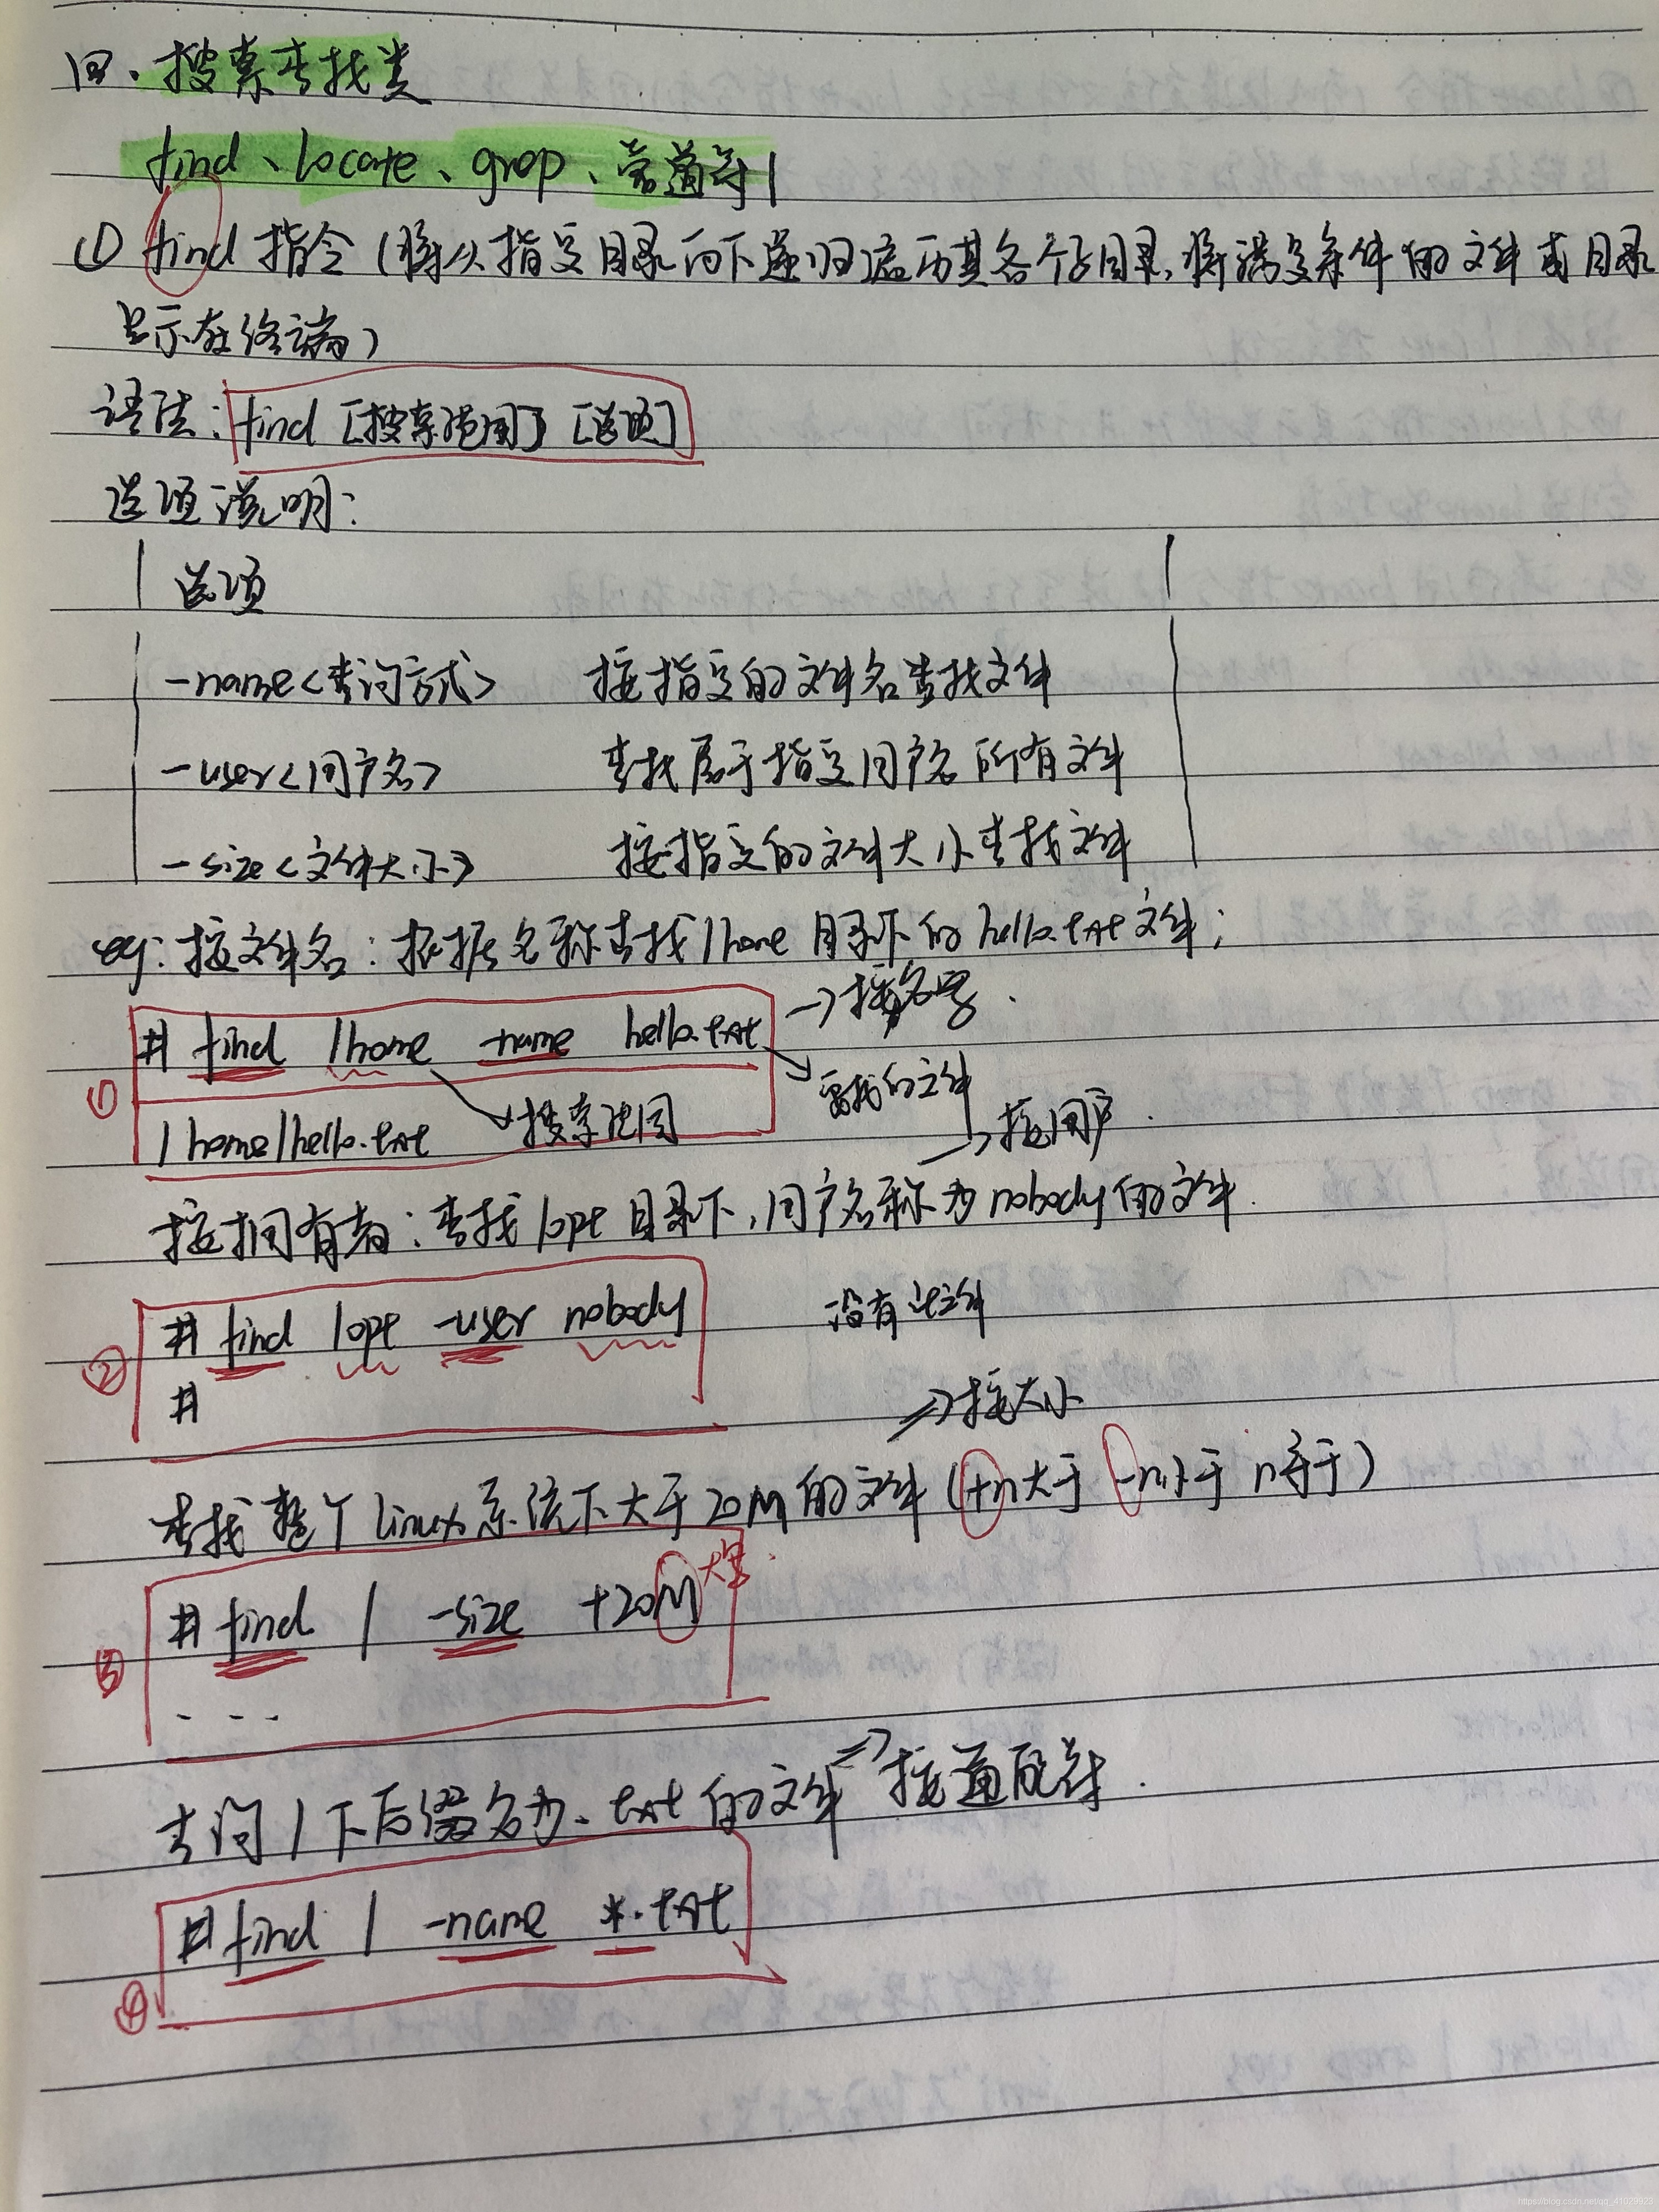 四、搜索查找类
find、locate、grep、管道符|
① find 指令 (将从指定目录向下递归遍历其各个子目录,将满足条件的文件或目录
显示在终端)
语法: find [搜索范围] [选项]
选项说明:
选项
-name<查询方式> 按指定的文件名查找文件
-user<用户名> 查找属于指定用户名所有文件
-size<文件大小> 按指定的文件大小查找文件
eg: 按文件名: 根据名称查找/home 目录下的hello.txt文件;
→按名字.
① # find /home -name hello.txt
需找的文件
/home/hello.txt 搜索范围
→按用户.
按拥有者: 查找/opt 目录下,用户名称为nobody的文件.
② # find /opt -user nobody 没有此文件
#
⇒按大小
查找整个linux系统下大于20M的文件 (+n大于 -n小于 n等于)
③ # find / -size +20M 大写.
...
查询/下后缀名为.txt的文件⇒按通配符.
④ # find / -name *.txt
https://blog.csdn.net/qq_41029923